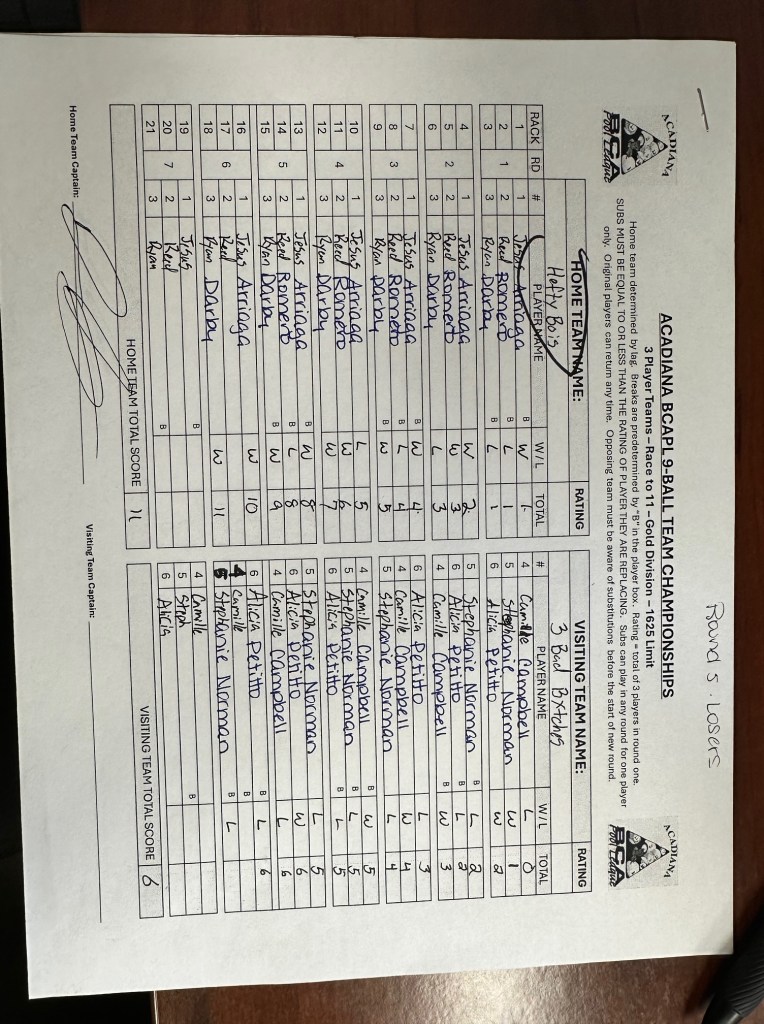 Round 5 · Losers
ACADIANA
BCA
Pool League
ACADIANA BCAPL 9-BALL TEAM CHAMPIONSHIPS
3 Player Teams – Race to 11 – Gold Division – 1625 Limit
ACADIANA
BCA
Pool League
Home team determined by lag. Breaks are predetermined by "B" in the player box. Rating = total of 3 players in round one.
SUBS MUST BE EQUAL TO OR LESS THAN THE RATING OF PLAYER THEY ARE REPLACING. Subs can play in any round for one player
only. Original players can return any time. Opposing team must be aware of substitutions before the start of new round.
HOME TEAM NAME: RATING VISITING TEAM NAME: RATING
Hefty Bois 3 Bad Bxtches
RACK RD # PLAYER NAME W/L TOTAL # PLAYER NAME W/L TOTAL
1 1 Jesus Arriaga B W 1 4 Camille Campbell L 0
2 1 2 Reed Romero B L 1 5 Stephanie Norman W 1
3 3 Ryan Darby B L 1 6 Alicia Petitto W 2
4 1 Jesus Arriaga W 2 5 Stephanie Norman B L 2
5 2 2 Reed Romero W 3 6 Alicia Petitto B L 2
6 3 Ryan Darby L 3 4 Camille Campbell B W 3
7 1 Jesus Arriaga B W 4 6 Alicia Petitto L 3
8 3 2 Reed Romero B L 4 4 Camille Campbell W 4
9 3 Ryan Darby B W 5 5 Stephanie Norman L 4
10 1 Jesus Arriaga L 5 4 Camille Campbell B W 5
11 4 2 Reed Romero W 6 5 Stephanie Norman B L 5
12 3 Ryan Darby W 7 6 Alicia Petitto B L 5
13 1 Jesus Arriaga B W 8 5 Stephanie Norman L 5
14 5 2 Reed Romero B L 8 6 Alicia Petitto W 6
15 3 Ryan Darby B W 9 4 Camille Campbell L 6
16 1 Jesus Arriaga W 10 6 Alicia Petitto B L 6
17 6 2 Reed W 11 4 Camille B L
18 3 Ryan Darby 5 Stephanie Norman B
19 1 Jesus B 4 Camille
20 7 2 Reed 5 Steph B
21 3 Ryan B 6 Alicia
HOME TEAM TOTAL SCORE 11 VISITING TEAM TOTAL SCORE 6
Home Team Captain: Visiting Team Captain: